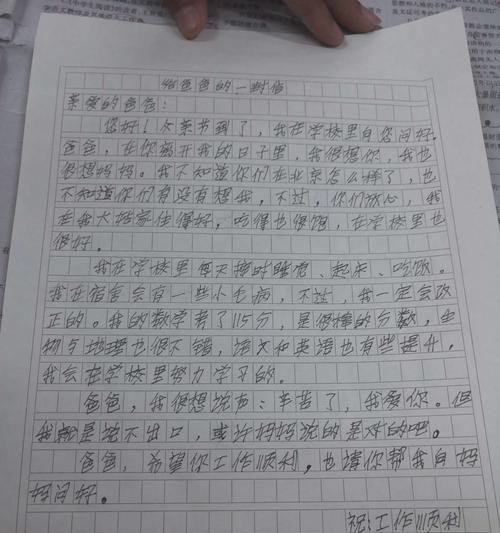 给爸爸的一封信
亲爱的爸爸：
您好！父亲节到了，我在学校里向您问好。
爸爸，在你离开我的日子里，我很想你，我也
很想妈妈。我不知道你们在北京怎么样了，也
不知道你们有没有想我，不过，你们放心，我
在我大姑家住得好，吃得也很饱，在学校里也
很好。
我在学校里每天按时睡觉、起床、吃饭。
我在宿舍会有一些小毛病，不过，我一定会改
正的。我的数学考了115分，是很棒的分数，生
物与地理也很不错，语文和英语也有些提升，
我会在学校里努力学习的。
爸爸，我很想说声：辛苦了，我爱你。但
我就是说不出口，或许妈妈说的是对的吧。
爸爸，希望你工作顺利，也请你帮我向妈
妈问好。
祝：工作顺利